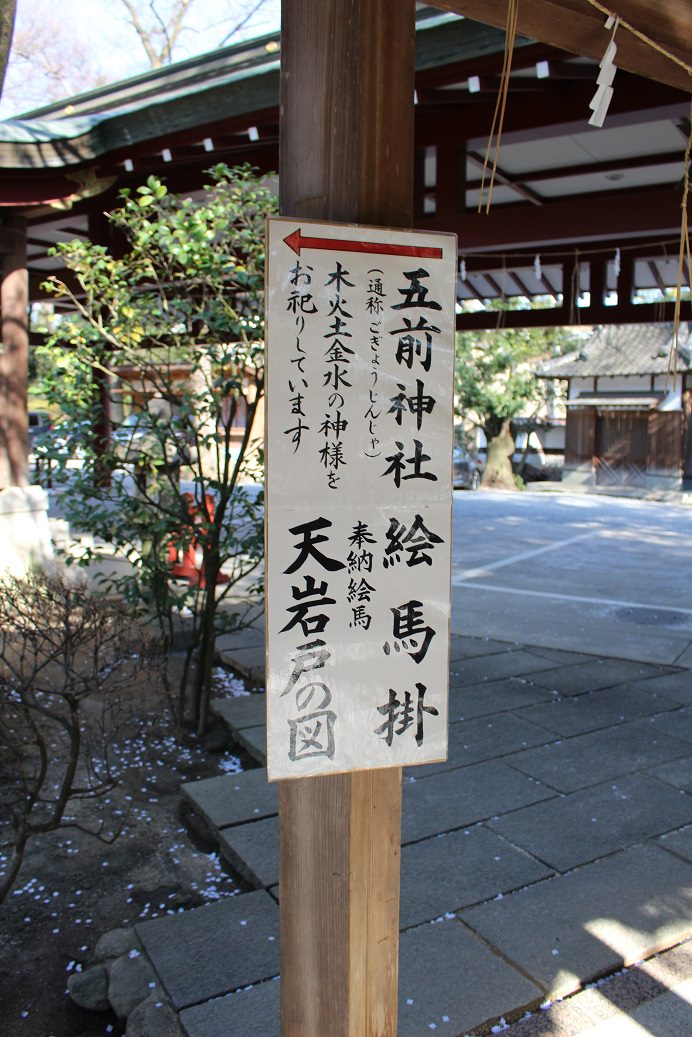 五前神社
(通称ごぎょうじんじゃ)
木火土金水の神様を
お祀りしています
絵馬掛
奉納絵馬
天岩戸の図